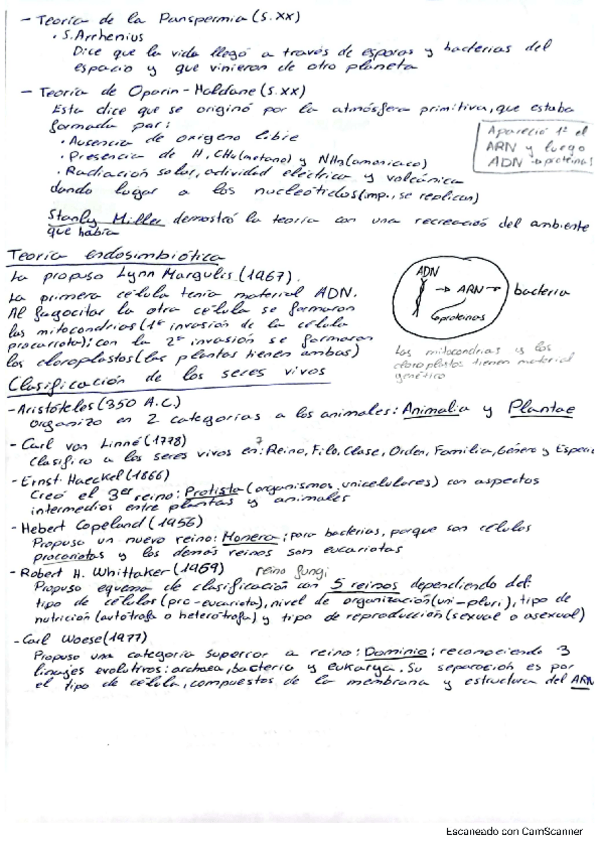 - Teoría de la Panspermia (S.XX)
• S. Arrhenius
Dice que la vida llegó a través de esporas y bacterias del
espacio y que vinieron de otro planeta
- Teoría de Oparin-Haldane (S.XX)
Esta dice que se originó por la atmósfera primitiva, que estaba
formada por:
• Ausencia de oxígeno libre
• Presencia de H, CH4 (metano) y NH3 (amoniaco)
• Radiación solar, actividad eléctrica y volcánica
dando lugar a los nucleótidos (imp., se replican)
Apareció 1º el
ARN y luego
ADN → proteínas
Stanly Miller demostró la teoría con una recreación del ambiente
que había
Teoría endosimbiótica
La propuso Lynn Margulis (1967).
La primera célula tenía material ADN.
Al fagocitar la otra célula se formaron
las mitocondrias (1ª invasión de la célula
procariota); con la 2ª invasión se formaron
los cloroplastos (las plantas tienen ambas)
ADN
→ ARN → bacteria
proteínas
Las mitocondrias y los
cloroplastos tienen material
genético
Clasificación de los seres vivos
- Aristóteles (350 A.C.)
organizo en 2 categorías a los animales: Animalia y Plantae
- Carl von Linné (1778)
Clasifico a los seres vivos en 7: Reino, Filo, Clase, Orden, Familia, Género y Especie
- Ernst Haeckel (1866)
Creó el 3er reino: Protista (organismos unicelulares) con aspectos
intermedios entre plantas y animales
- Hebert Copeland (1956)
Propuso un nuevo reino: Monera; para bacterias, porque son células
procariotas y los demás reinos son eucariotas
- Robert H. Whittaker (1969) reino fungi
Propuso equema de clasificación con 5 reinos dependiendo del:
tipo de células (pro-eucariota), nivel de organización (uni-pluri), tipo de
nutrición (autótrofa o heterótrofa) y tipo de reproducción (sexual o asexual)
- Carl Woese (1977)
Propuso una categoría superior a reino: Dominio; reconociendo 3
linajes evolutivos: archaea, bacteria y eukarya. Su separación es por
el tipo de célula, compuestos de la membrana y estructura del ARN
Escaneado con CamScanner